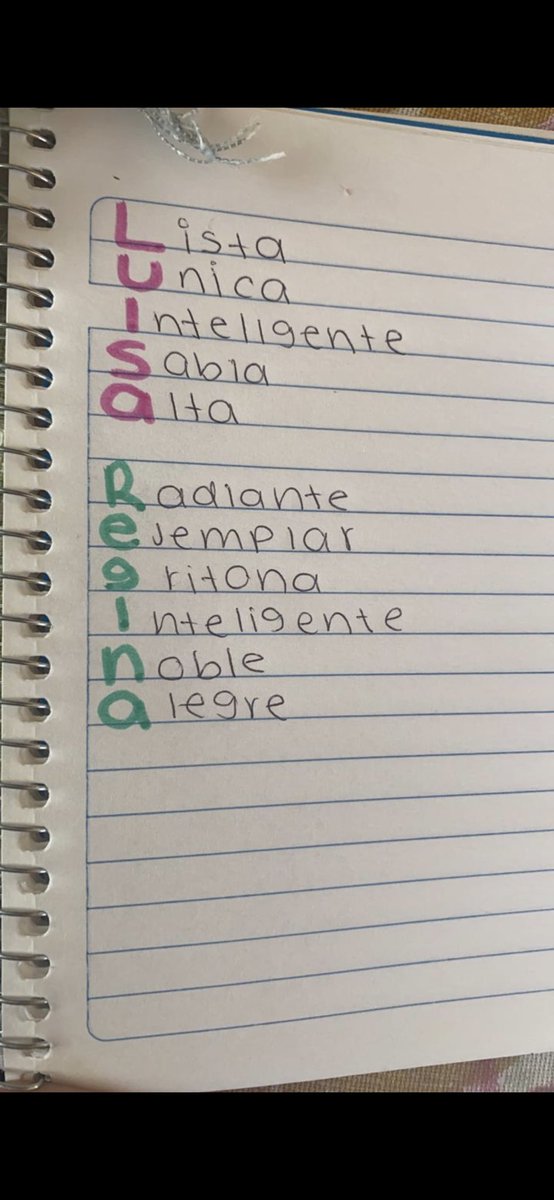 Lista
Unica
Inteligente
Sabia
alta
Radiante
eJemplar
gritona
Inteligente
noble
alegre